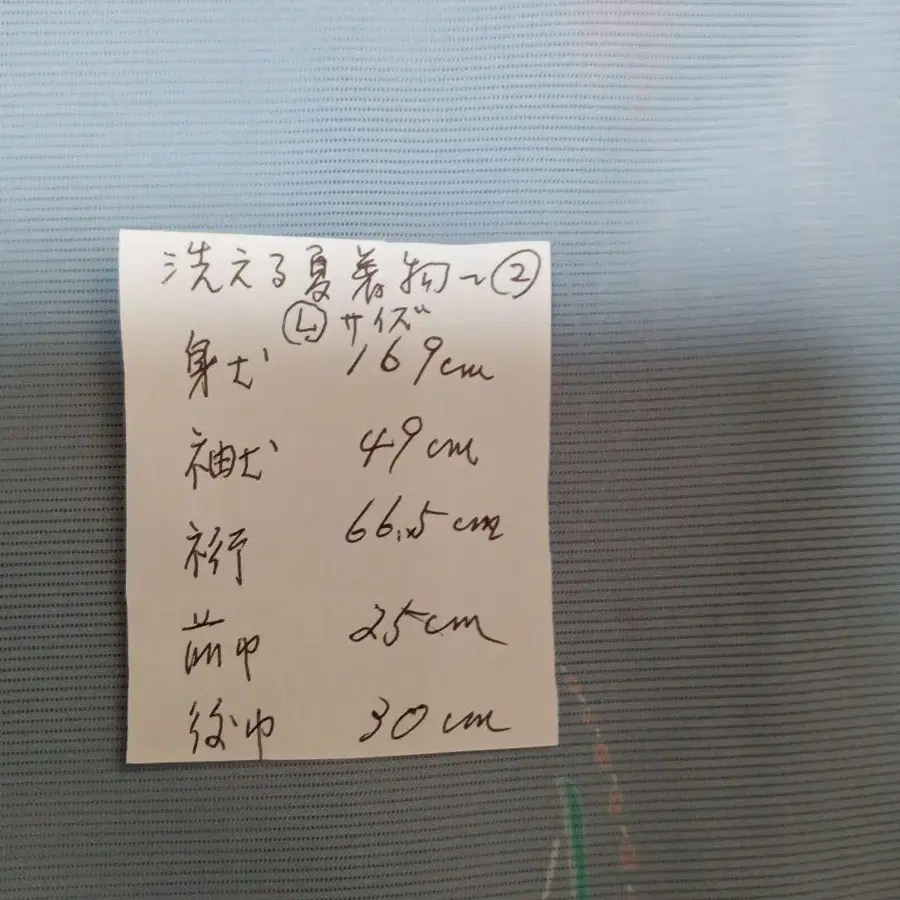 洗える夏着物~②
Ⓛサイズ
身丈 169cm
袖丈 49cm
裄 66.5cm
前巾 25cm
後巾 30cm